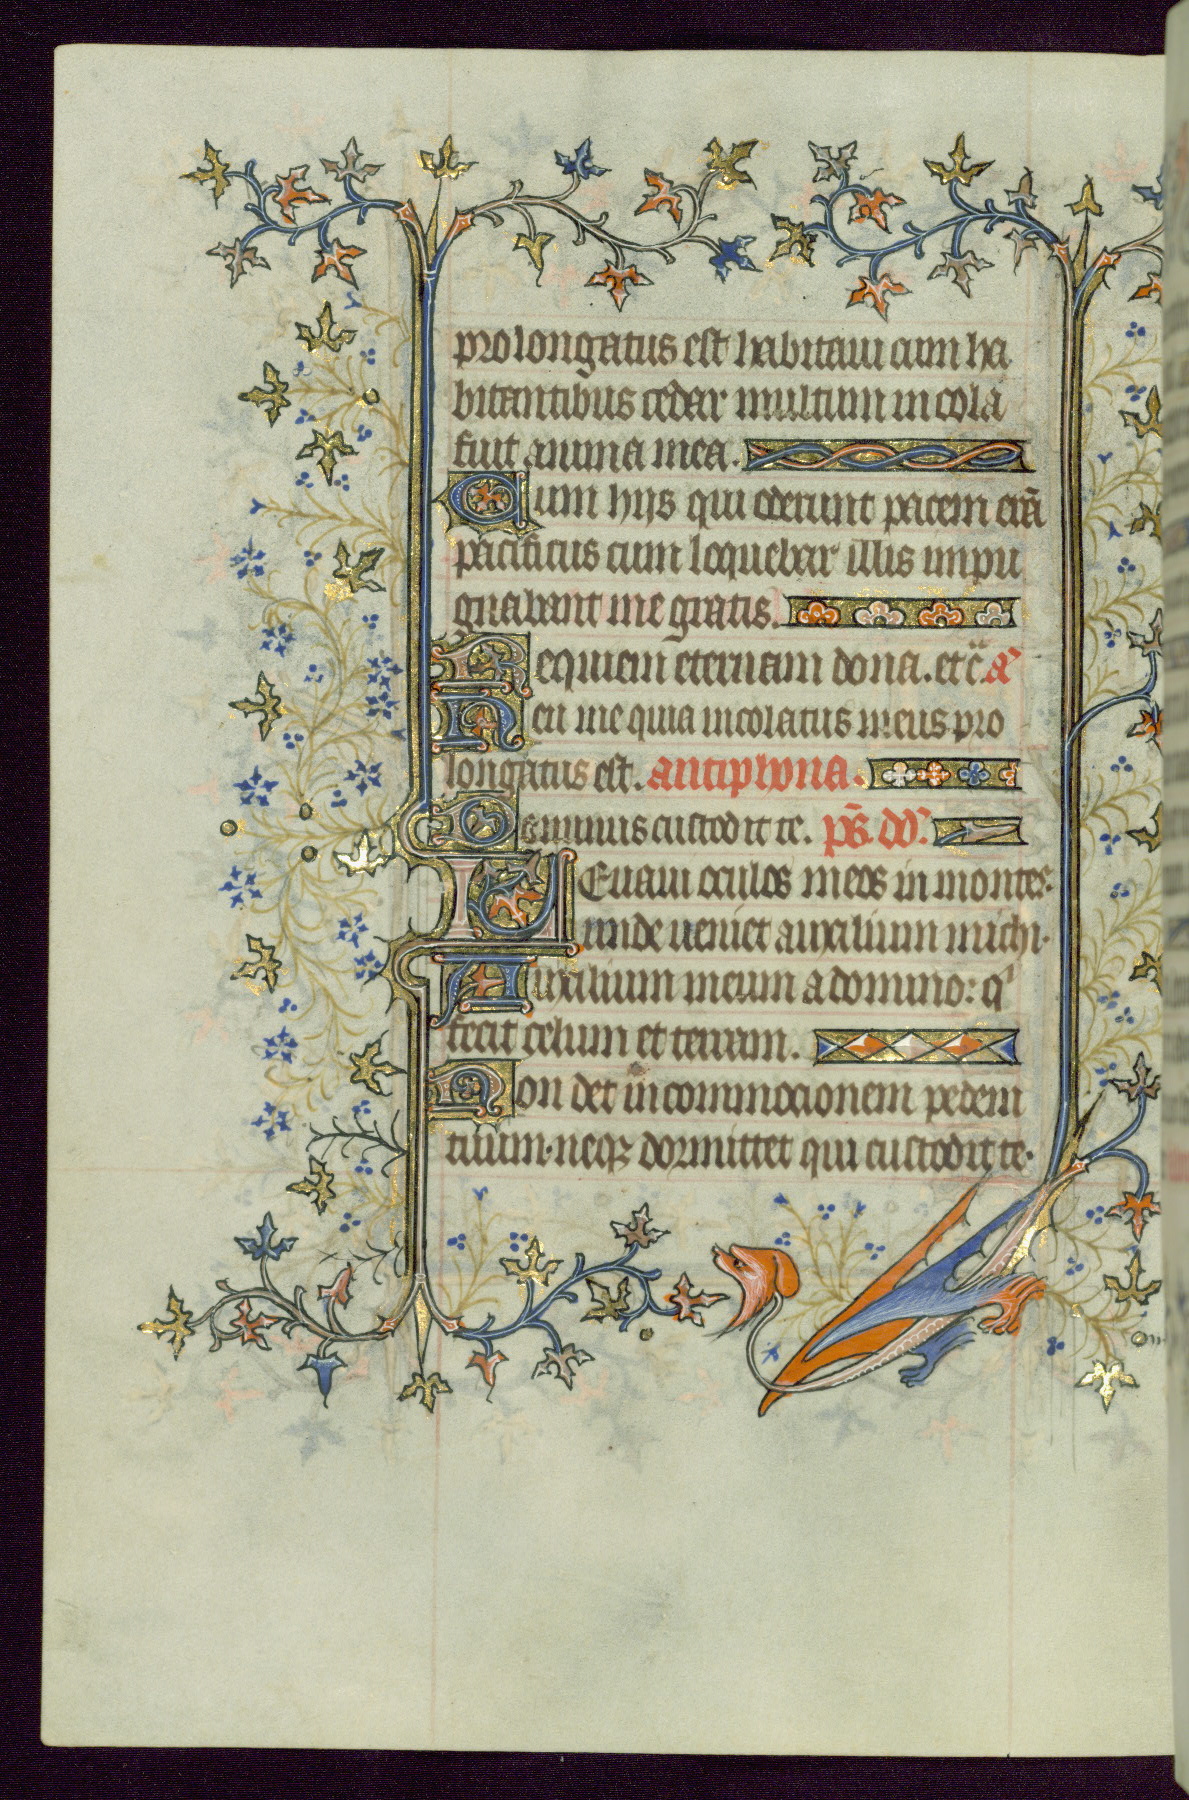 prolongatus est habitaui cum ha
bitantibus cedar multum incola
fuit anima mea.
Cum hijs qui oderunt pacem erā
pacificus cum loquebar illis inpu
gnabant me gratis.
Requiem eternam dona. etc̄. a͞
Heu me quia incolatus meus pro
longatus est. antiphona.
Dominus custodit te. p̄s. dd̄.
Leuaui oculos meos in montes.
unde ueniet auxilium michi.
Auxilium meum a domino: qⁱ
fecit celum et terram.
Non det in commocionem pedem
tuum. neqꝫ dormittet qui custodit te.